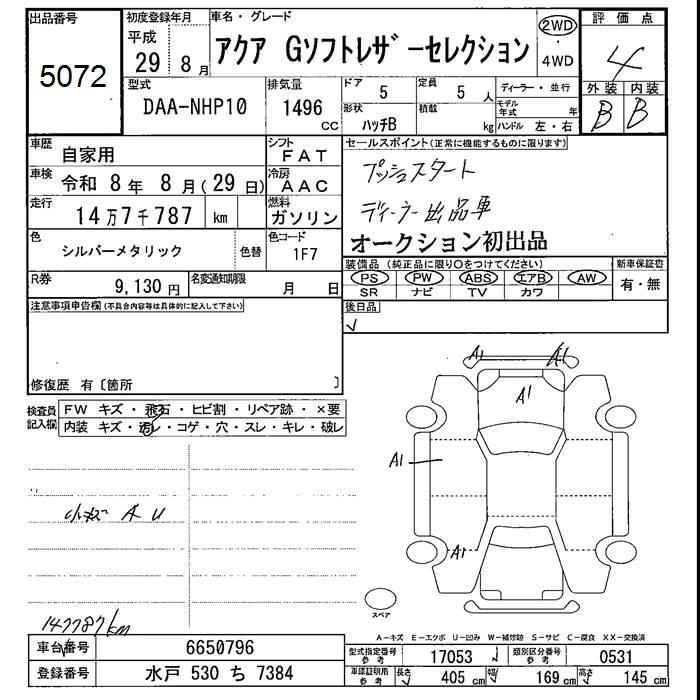 出品番号
5072
初度登録年月
平成
29 8月
車名・グレード
アクア Gソフトレザーセレクション
2WD
・
4WD
評価点
4
外装 内装
B B
型式
DAA-NHP10
排気量
1496
cc
ドア
5
定員
5 人
形状
ハッチB
積載
kg
ディーラー・並行
モデル年式 年
ハンドル 左・右
車歴
自家用
シフト
FAT
車検
令和 8年 8月(29日)
冷房
AAC
走行
14万7千787 km
燃料
ガソリン
色
シルバーメタリック
色替
色コード
1F7
R券
9,130円
名変通知期限
月 日
セールスポイント(正常に機能するものに限ります)
プッシュスタート
ディーラー出品車
オークション初出品
装備品(純正品に限り○をつけてください)
PS PW ABS エアB AW
SR ナビ TV カワ
新車保証書
有・無
後日品
✓
注意事項申告欄(不具合内容等は具体的に記入して下さい)
修復歴 有〔箇所 〕
検査員
記入欄
FW キズ・飛石・ヒビ割・リペア跡・×要
内装 キズ・汚レ・コゲ・穴・スレ・キレ・破レ
小キズ A U
147787km
A1 A1
A1
A1
A1
スペア
A-キズ E-エクボ U-凹み W-補修跡 S-サビ C-腐食 XX-交換済
車台番号
6650796
登録番号
水戸 530 ち 7384
型式指定番号
参考
17053
類別区分番号
参考
0531
車検証明用
参考
長さ
405 cm
幅
169 cm
高さ
145 cm